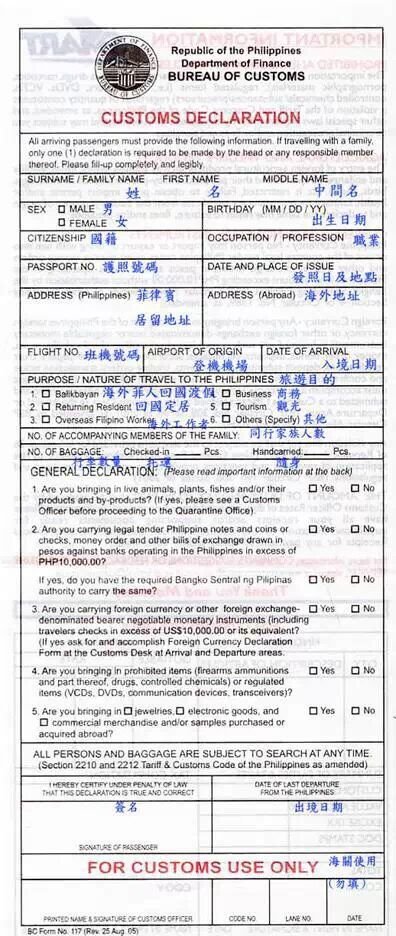 DEPARTMENT OF FINANCE
BUREAU OF CUSTOMS
Republic of the Philippines
Department of Finance
BUREAU OF CUSTOMS
CUSTOMS DECLARATION
All arriving passengers must provide the following information. If travelling with a family,
only one (1) declaration is required to be made by the head or any responsible member
thereof. Please fill-up completely and legibly.
SURNAME / FAMILY NAME FIRST NAME MIDDLE NAME
姓 名 中間名
SEX MALE 男 BIRTHDAY (MM / DD / YY)
FEMALE 女 出生日期
CITIZENSHIP 國籍 OCCUPATION / PROFESSION 職業
PASSPORT NO. 護照號碼 DATE AND PLACE OF ISSUE
發照日及地點
ADDRESS (Philippines) 菲律賓 ADDRESS (Abroad) 海外地址
居留地址
FLIGHT NO. 班機號碼 AIRPORT OF ORIGIN DATE OF ARRIVAL
登機機場 入境日期
PURPOSE / NATURE OF TRAVEL TO THE PHILIPPINES 旅遊目的
1. Balikbayan 海外菲人回國渡假 4. Business 商務
2. Returning Resident 回國定居 5. Tourism 觀光
3. Overseas Filipino Worker 海外工作者 6. Others (Specify) 其他
NO. OF ACCOMPANYING MEMBERS OF THE FAMILY: 同行家族人數
NO. OF BAGGAGE: Checked-in Pcs. Handcarried: Pcs.
行李數量 托運 隨身
GENERAL DECLARATION: (Please read important information at the back)
1. Are you bringing in live animals, plants, fishes and/or their Yes No
products and by-products? (If yes, please see a Customs
Officer before proceeding to the Quarantine Office).
2. Are you carrying legal tender Philippine notes and coins or Yes No
checks, money order and other bills of exchange drawn in
pesos against banks operating in the Philippines in excess of
PHP10,000.00?
If yes, do you have the required Bangko Sentral ng Pilipinas Yes No
authority to carry the same?
3. Are you carrying foreign currency or other foreign exchange- Yes No
denominated bearer negotiable monetary instruments (including
travelers checks in excess of US$10,000.00 or its equivalent?
(If yes ask for and accomplish Foreign Currency Declaration
Form at the Customs Desk at Arrival and Departure areas.
4. Are you bringing in prohibited items (firearms ammunitions Yes No
and part thereof, drugs, controlled chemicals) or regulated
items (VCDs, DVDs, communication devices, transceivers)?
5. Are you bringing in jewelries, electronic goods, and Yes No
commercial merchandise and/or samples purchased or
acquired abroad?
ALL PERSONS AND BAGGAGE ARE SUBJECT TO SEARCH AT ANY TIME.
(Section 2210 and 2212 Tariff & Customs Code of the Philippines as amended)
I HEREBY CERTIFY UNDER PENALTY OF LAW DATE OF LAST DEPARTURE
THAT THIS DECLARATION IS TRUE AND CORRECT FROM THE PHILIPPINES
簽名 出境日期
SIGNATURE OF PASSENGER
FOR CUSTOMS USE ONLY 海關使用
(勿填)
PRINTED NAME & SIGNATURE OF CUSTOMS OFFICER CODE NO. LANE NO. DATE
BC Form No. 117 (Rev. 25 Aug. 05)